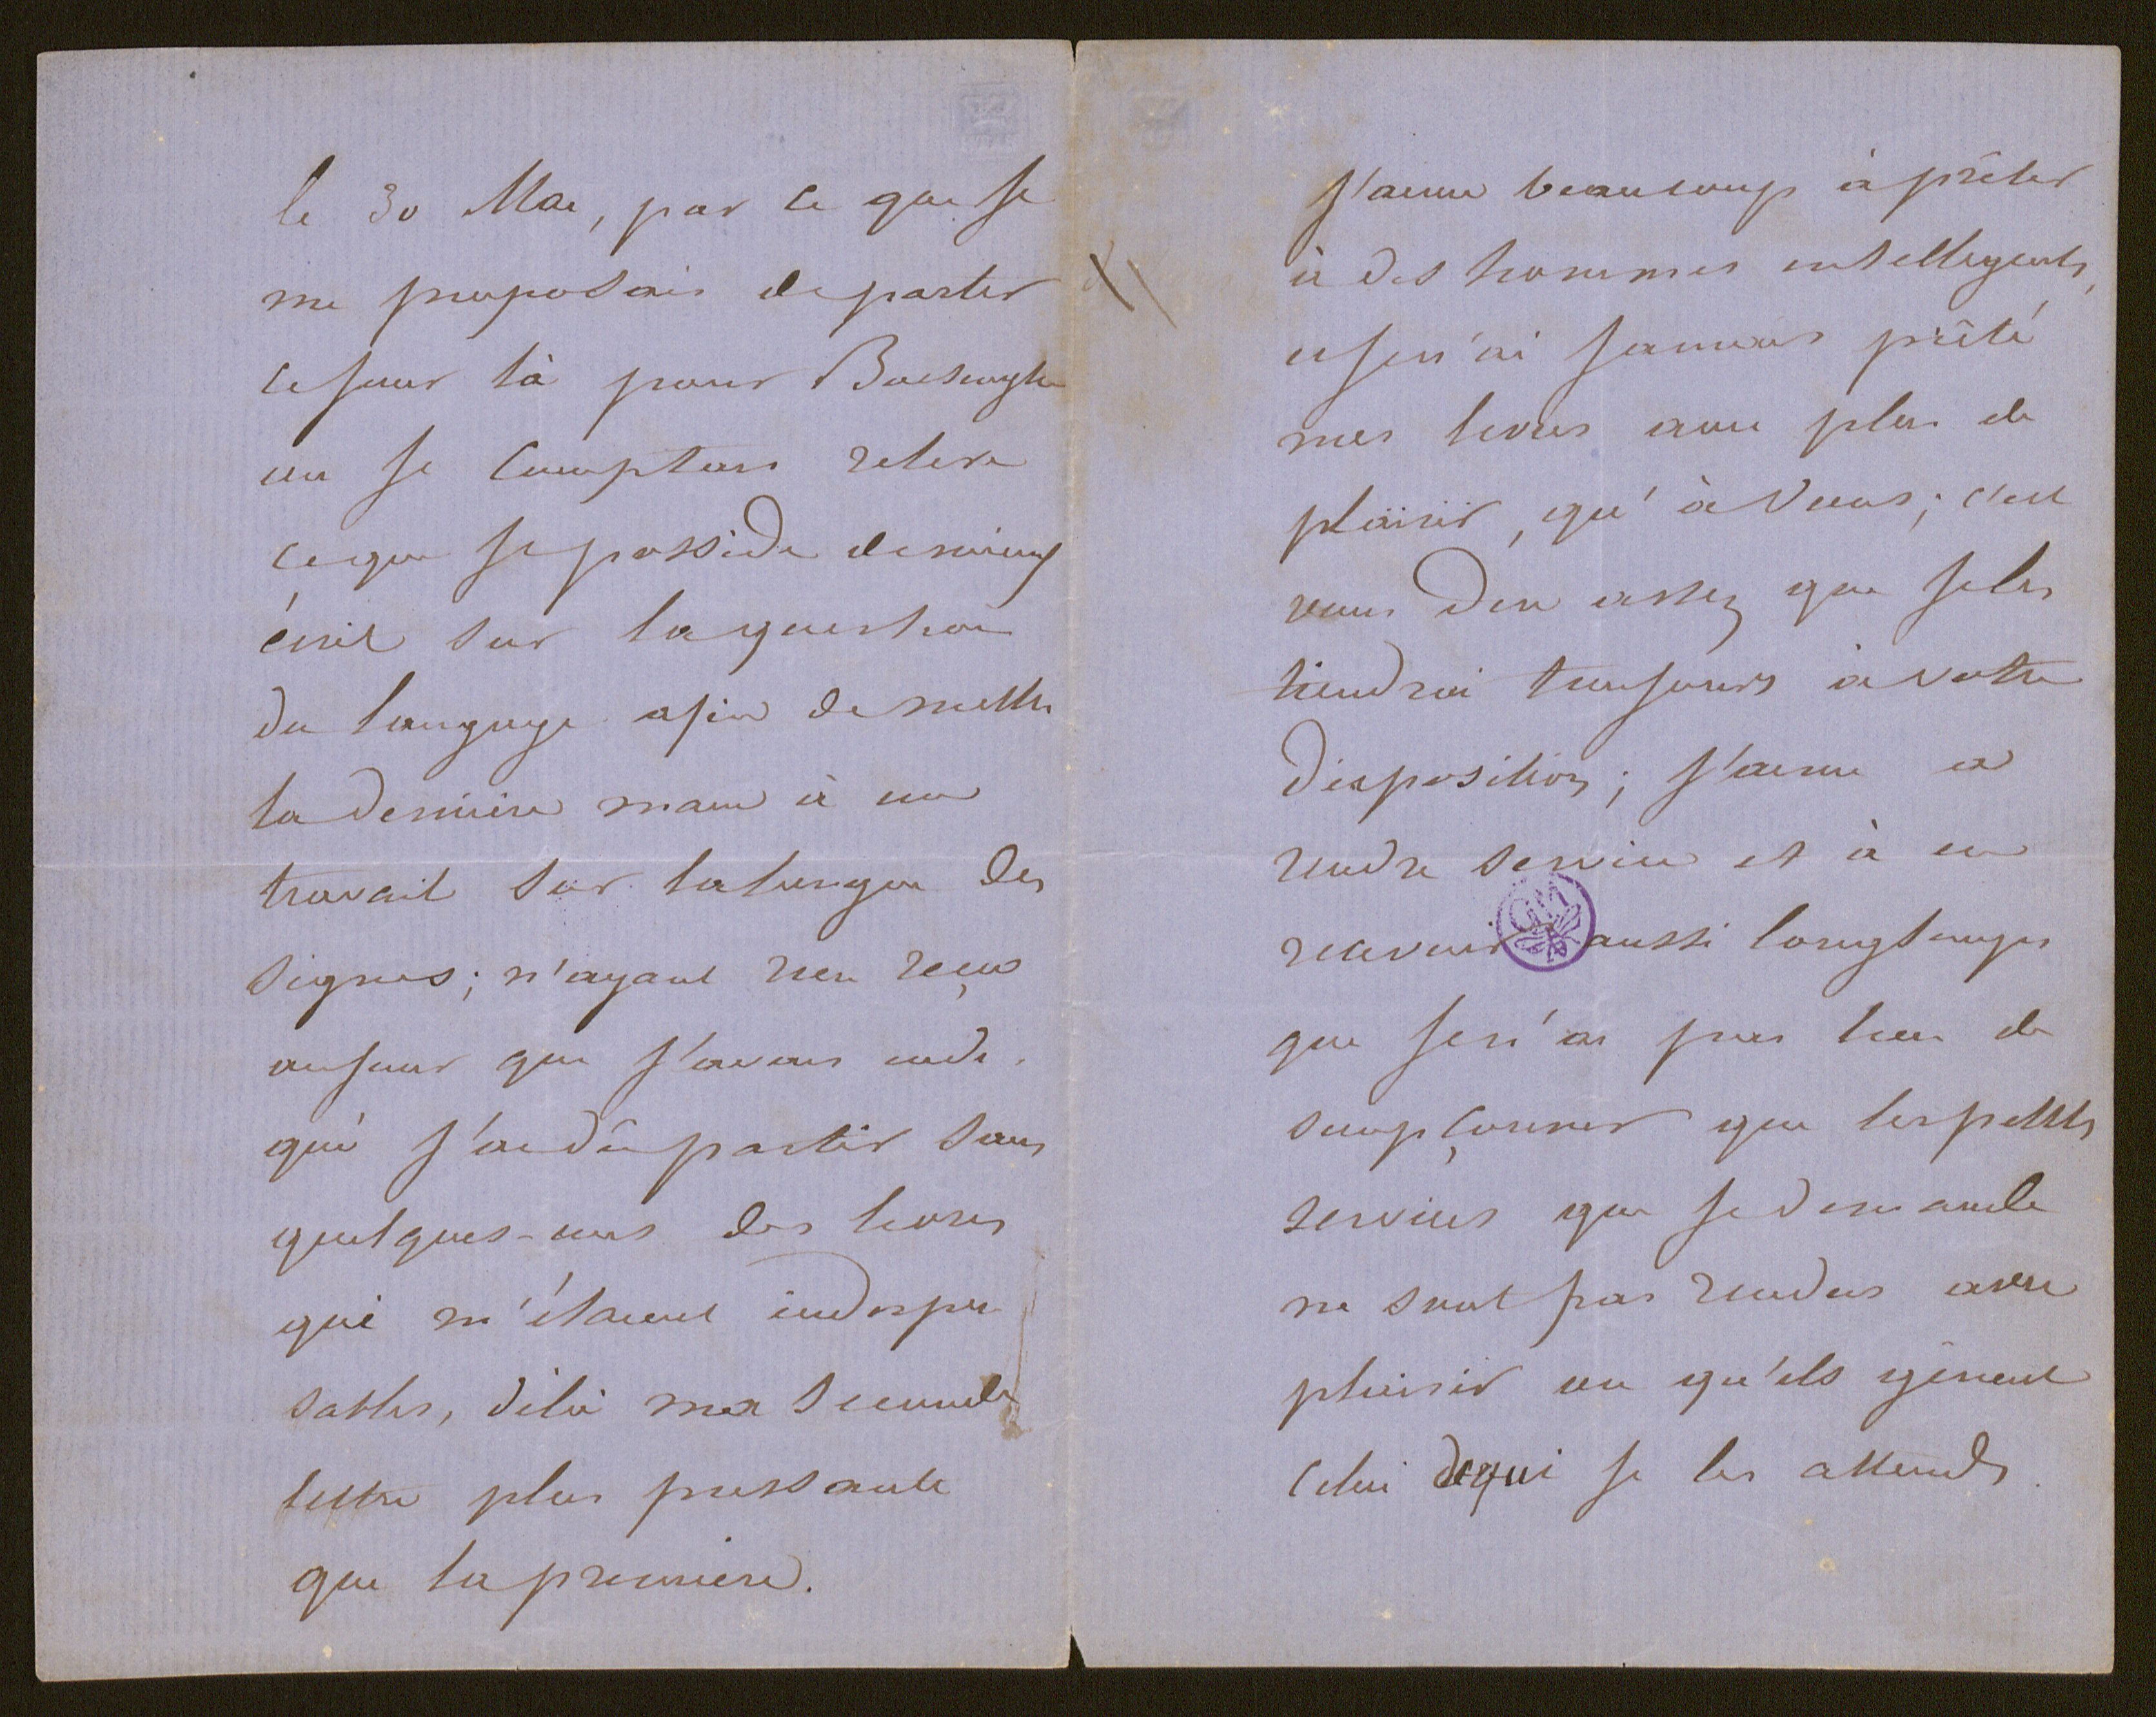 le 30 Mai, par ce que je
me proposais de partir
ce jour là pour
ou je comptais relire
ce que je possède de mieux
écrit sur la question
du langage afin de mettre
la dernière main à un
travail sur la langue des
signes; n'ayant rien reçu
au jour que j'avais indi
qué j'ai dû partir sans
quelques-uns des livres
qui m'étaient indispen
sables, delà ma seconde
lettre plus pressante
que la première.
J'aime beaucoup à prêter
à des hommes intelligents,
et je n'ai jamais prêté
mes livres avec plus de
plaisir, qu'à vous; c'est
vous dire assez que je les
tiendrai toujours à votre
disposition; j'aime a
rendre service et à en
recevoir aussi longtemps
que je n'ai pas lieu de
soupçonner que les petits
services que je demande
ne sont pas rendus avec
plaisir ou qu'ils gênent
celui de qui je les attends.